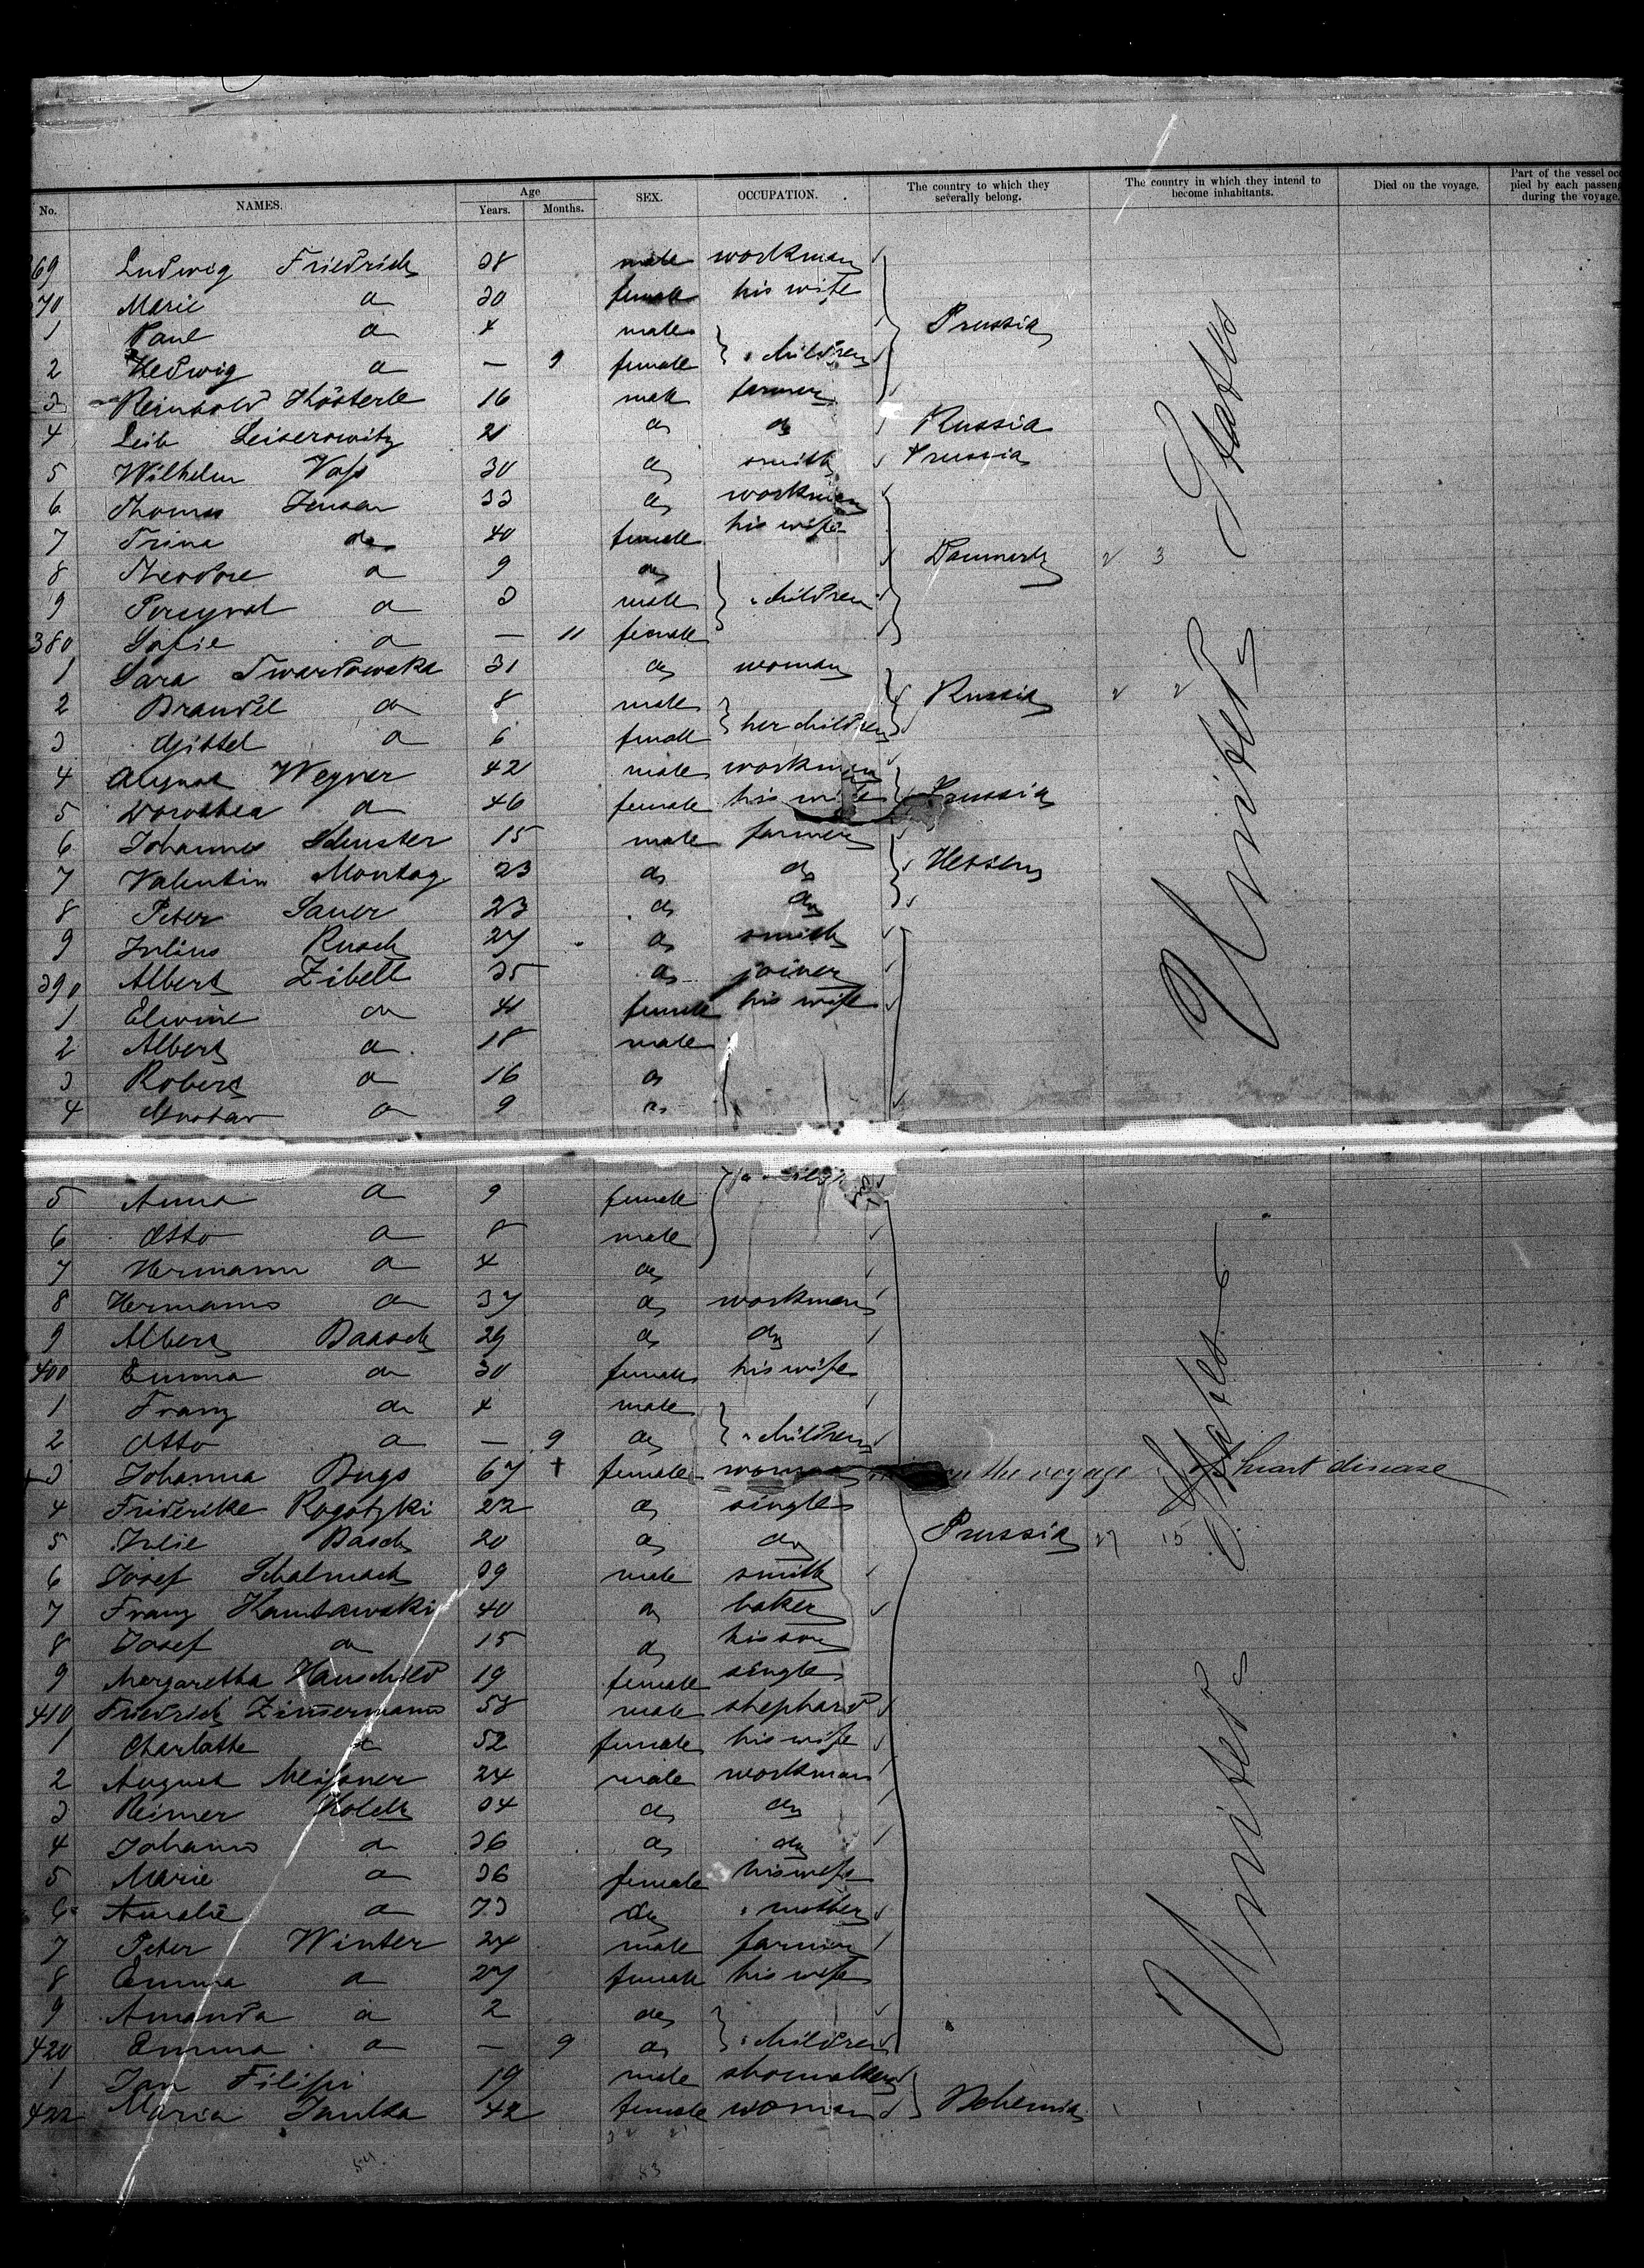 No. NAMES. Age Years. Months. SEX. OCCUPATION. The country to which they severally belong. The country in which they intend to become inhabitants. Died on the voyage. Part of the vessel occ pied by each passeng during the voyage.
69 Ludwig Friedrich 38 male workman
70 Marie do 30 female his wife
1 Paul do 4 male Prussia
2 Hedwig do — 9 female " children
3 Reinhold Kösterle 16 male farmer
4 Leib Leiserowitz 21 do do Russia
5 Wilhelm Voß 30 do smith Prussia
6 Thomas Jensen 33 do workman
7 Trina do 40 female his wife
8 Theodore do 9 do Danmark 2 3
9 do 3 male " children
380 Sofie do — 11 female
1 Sara Twardowska 31 do woman
2 Brandel do 8 male Russia 2 2
3 Gittel do 6 female her children
4 August Wegner 42 male workman
5 Dorothea do 46 female his wife Prussia
6 Johannes Schuster 15 male farmer
7 Valentin Montag 23 do do Hessen
8 Peter Sauer 23 do do
9 Julius Rusch 27 do smith
390 Albert Zibell 35 do joiner
1 Elwine do 41 female his wife
2 Albert do 18 male
3 Robert do 16 do
4 Gustav do 9 do
United States
5 Anna do 9 female
6 Otto do 8 male
7 Hermann do 4 do
8 Hermann do 37 do workman
9 Albert Baasch 29 do do
400 Emma do 30 female his wife
1 Franz do 4 male
2 Otto do — 9 do " children
3 Johanna Bugs 67 † female woman on the voyage of heart disease
4 Friderike Rogotzki 22 do single
5 Julie Basch 20 do do Prussia 27 15
6 Josef Schalmach 39 male smith
7 Franz Kamtzewski 40 do baker
8 Josef do 15 do his son
9 Margaretha Hauschild 19 female single
410 Friedrich Zimermann 58 male shephard
1 Charlotte do 52 female his wife
2 August Meißner 24 male workman
3 Reimer Holdt 34 do do
4 Johann do 36 do do
5 Marie do 36 female his wife
6 Amalie do 73 do " mother
7 Peter Winter 24 male farmer
8 Emma do 27 female his wife
9 Amanda do 2 do
420 Emma do — 9 do " children
1 Jan Filipi 19 male shomaker
422 Maria 42 female woman Bohemia 1 1
United States
54 83